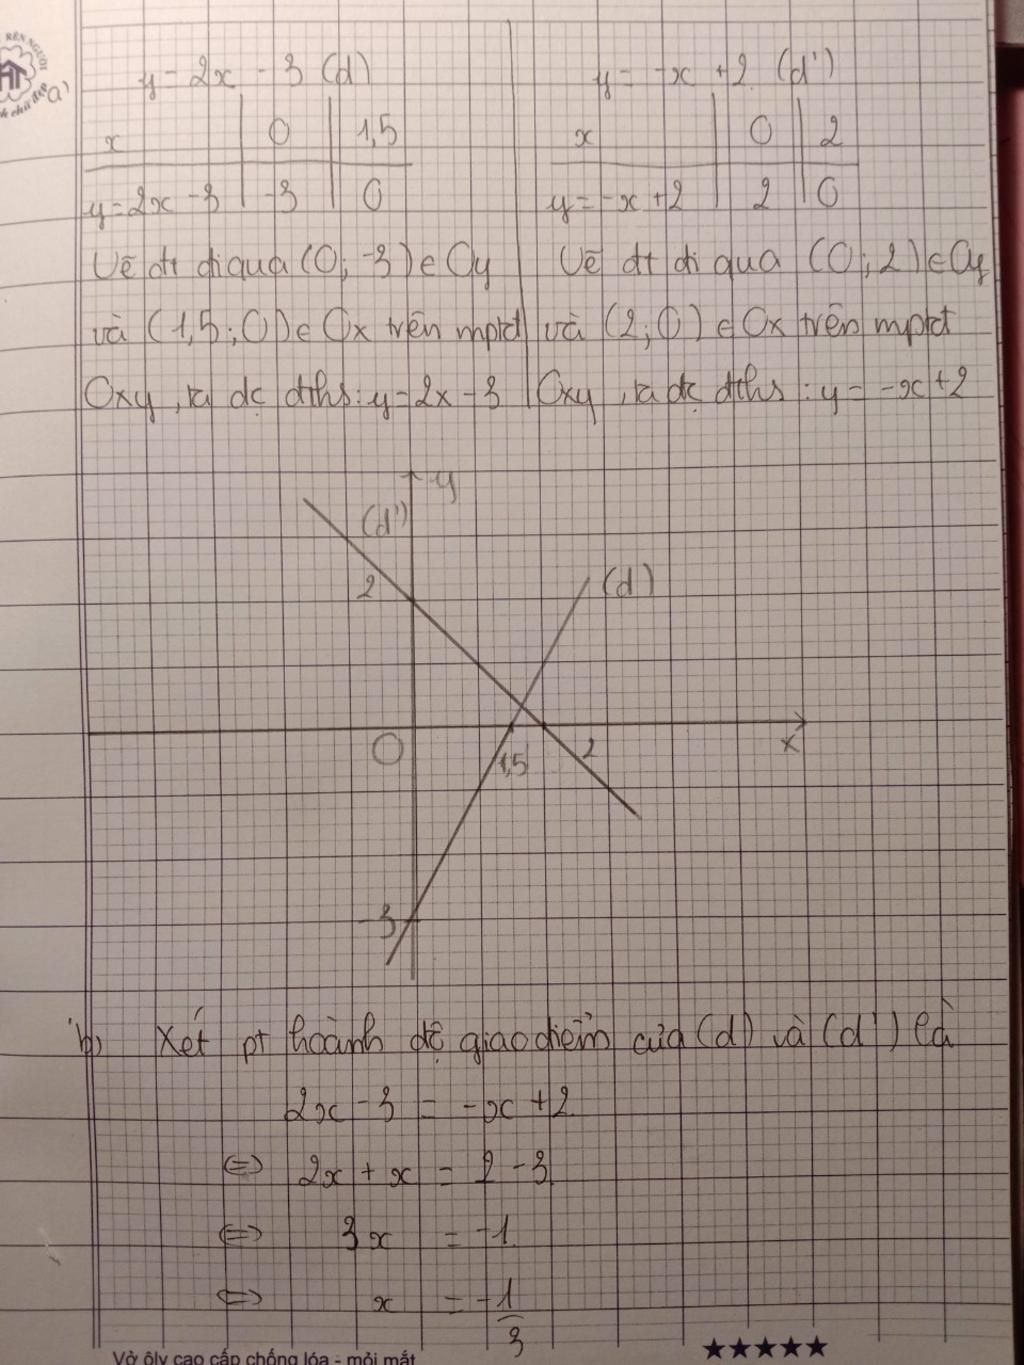 RÈN NGƯỜI
a) y = 2x - 3 (d) y = -x + 2 (d')
x 0 1,5 x 0 2
y = 2x - 3 -3 0 y = -x + 2 2 0
Vẽ đt đi qua (0; -3) ∈ Oy Vẽ đt đi qua (0; 2) ∈ Oy
và (1,5; 0) ∈ Ox trên mptđ và (2; 0) ∈ Ox trên mptđ
Oxy, ta đc đths: y = 2x - 3 Oxy, ta đc đths: y = -x + 2
y
(d')
2
(d)
O
1,5
2
x
-3
b) Xét pt hoành độ giao điểm của (d) và (d') là
2x - 3 = -x + 2
⇔ 2x + x = 2 - 3
⇔ 3x = -1
⇔ x = -1/3
Vở ôly cao cấp chống lóa - mỏi mắt ★★★★★